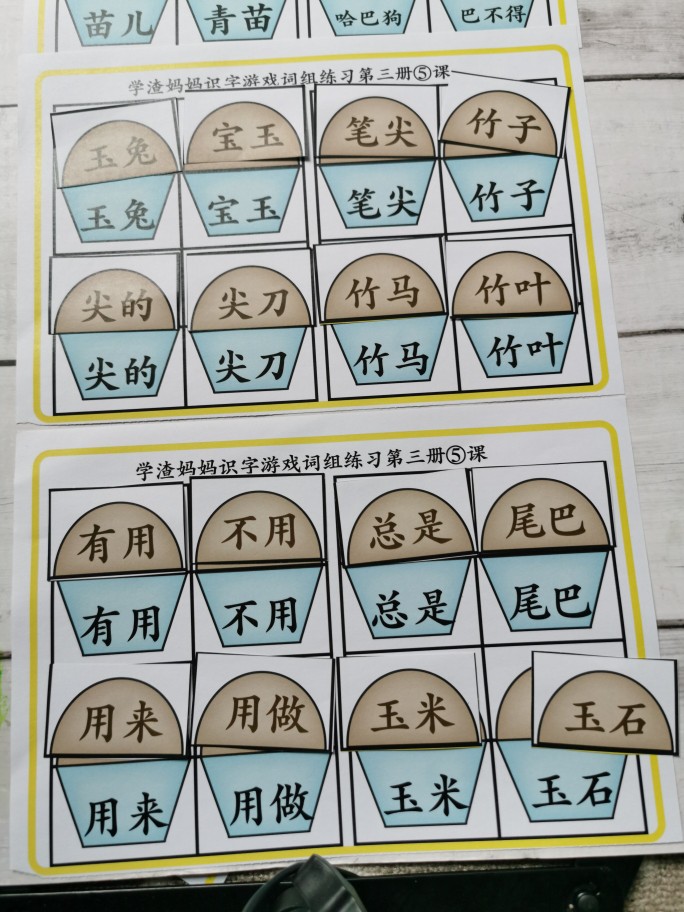 苗儿 青苗 哈巴狗 巴不得
学渣妈妈识字游戏词组练习第三册⑤课
玉兔 宝玉 笔尖 竹子
玉兔 宝玉 笔尖 竹子
尖的 尖刀 竹马 竹叶
尖的 尖刀 竹马 竹叶
学渣妈妈识字游戏词组练习第三册⑤课
有用 不用 总是 尾巴
有用 不用 总是 尾巴
用来 用做 玉米 玉石
用来 用做 玉米 玉石